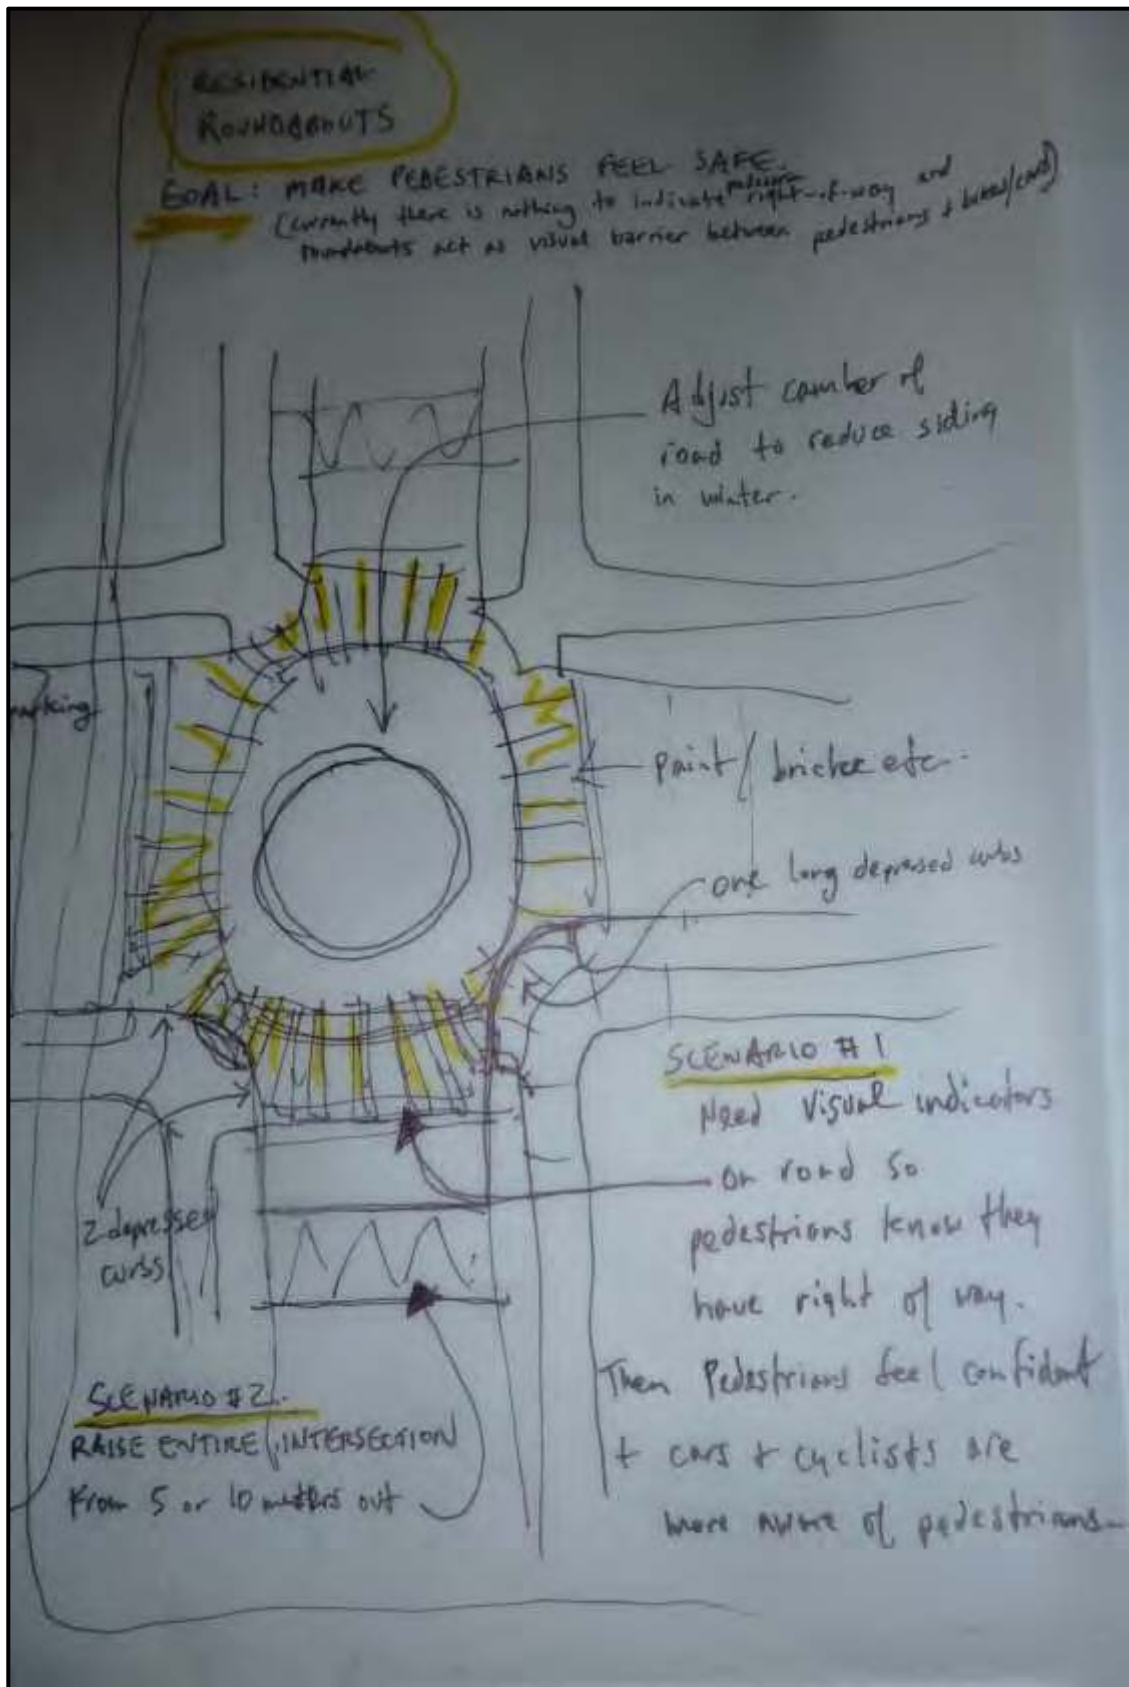 RESIDENTIAL
ROUNDABOUTS
GOAL: MAKE PEDESTRIANS FEEL SAFE.
(currently there is nothing to indicate pedestrian right-of-way and
roundabouts act as visual barrier between pedestrians + bikes/cars)
Adjust camber of
road to reduce sliding
in winter.
parking
paint/bricks etc.
one long depressed curbs
SCENARIO #1
Need visual indicators
on road so
pedestrians know they
have right of way.
Then Pedestrians feel confident
+ cars + cyclists are
more aware of pedestrians.
2 depressed
curbs
SCENARIO #2.
RAISE ENTIRE INTERSECTION
From 5 or 10 meters out